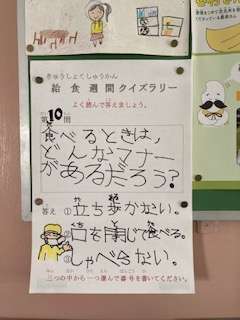 きゅうしょくしゅうかん
給食週間クイズラリー
よく読んで答えましょう。
第10問
食べるときは、
どんなマナー
があるだろう?
答え ①立ち歩かない。
②口を閉じて食べる。
③しゃべらない。
三つの中から一つ選んで番号を書いてください。